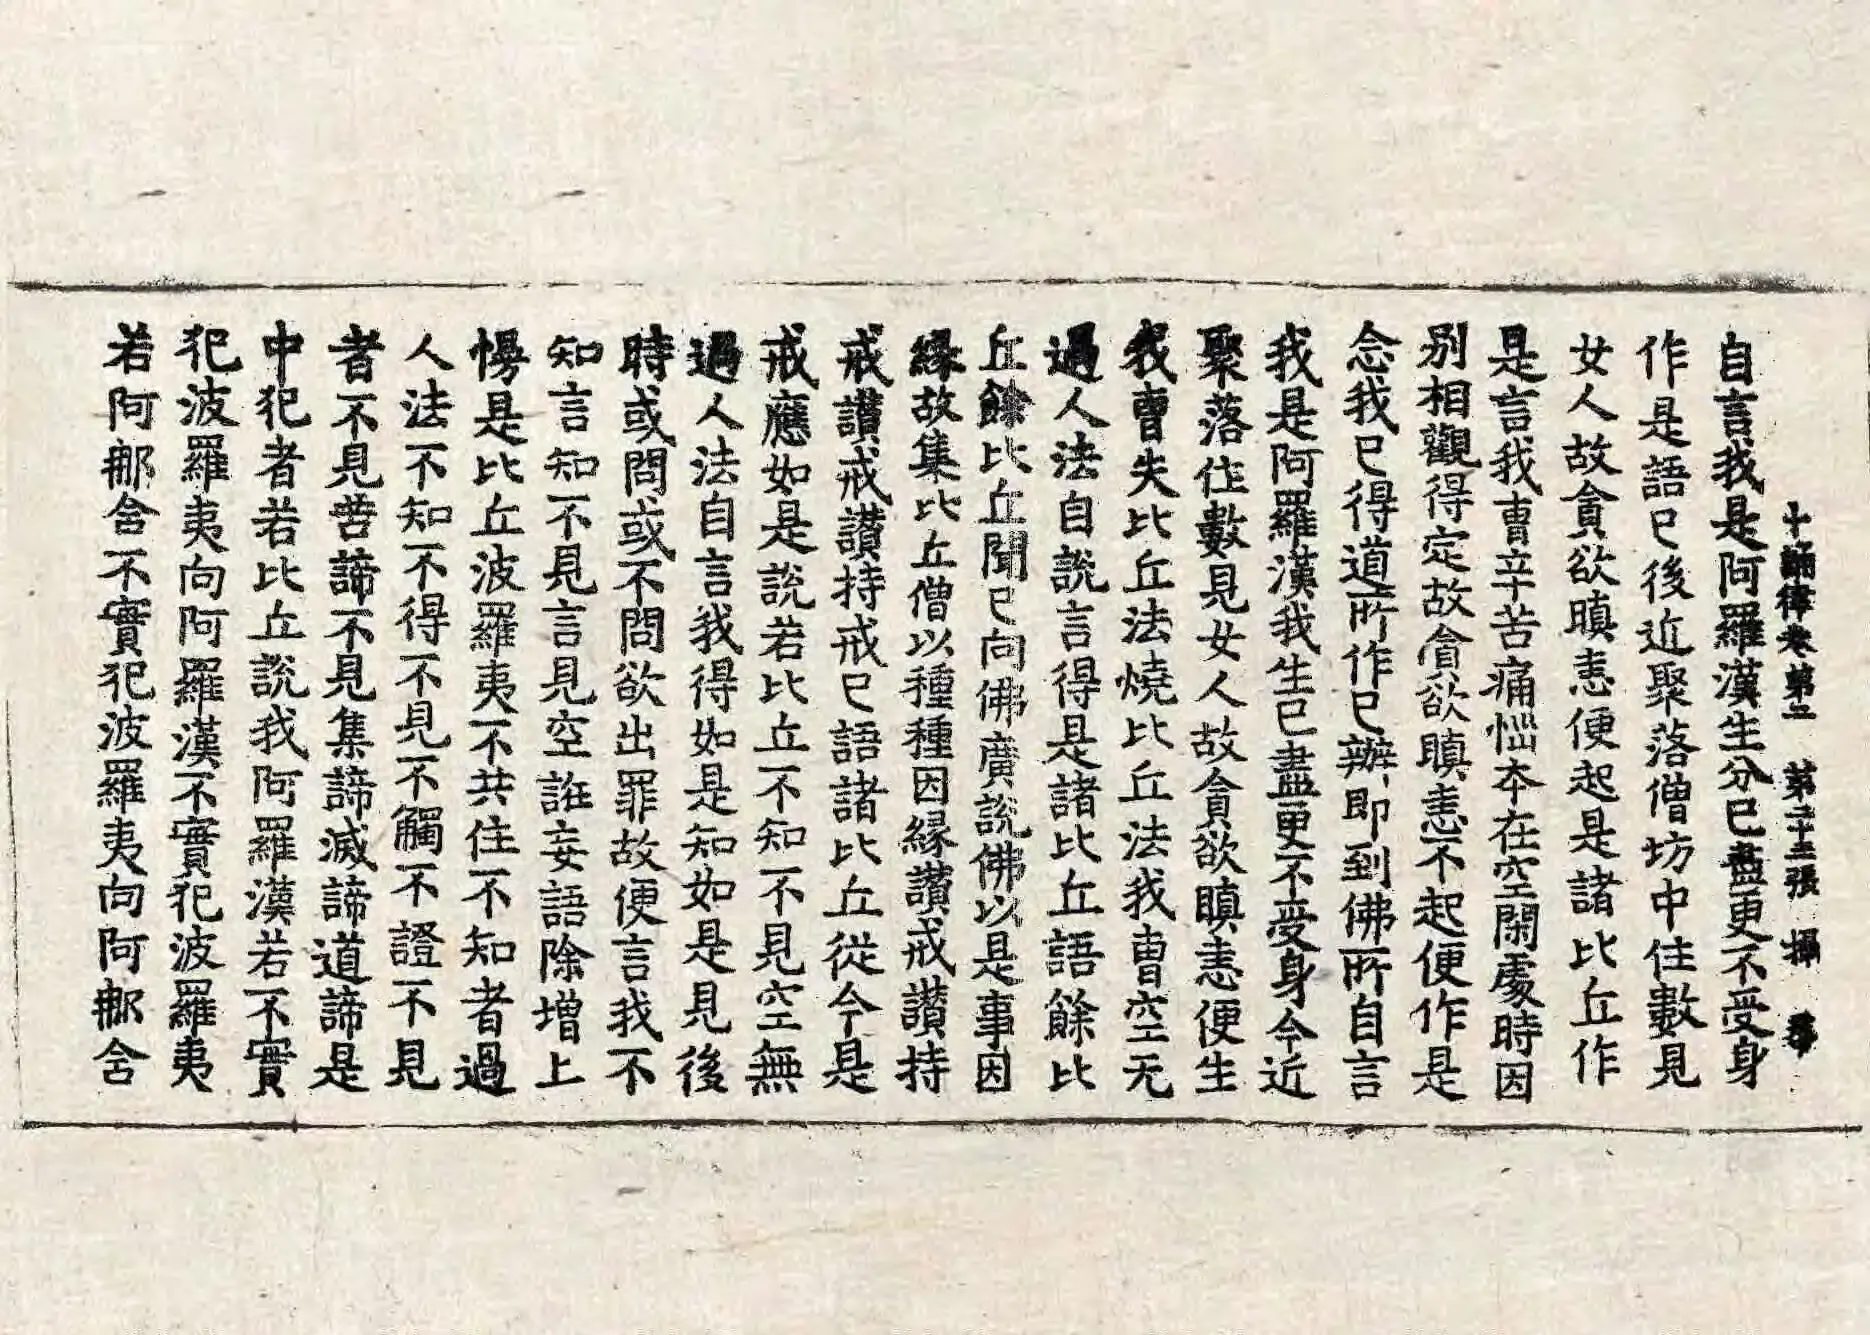 十誦律卷第二　第二十三張　攝
自言我是阿羅漢生分已盡更不受身
作是語已後近聚落僧坊中住數見
女人故貪欲瞋恚便起是諸比丘作
是言我曹辛苦痛惱本在空閑處時因
别相觀得定故貪欲瞋恚不起便作是
念我已得道所作已辦即到佛所自言
我是阿羅漢我生已盡更不受身今近
聚落住數見女人故貪欲瞋恚便生
我曹失比丘法燒比丘法我曹空无
過人法自說言得是諸比丘語餘比
丘餘比丘聞已向佛廣說佛以是事因
緣故集比丘僧以種種因緣讚戒讚持
戒讚戒讚持戒已語諸比丘從今是
戒應如是說若比丘不知不見空無
過人法自言我得如是知如是見後
時或問或不問欲出罪故便言我不
知言知不見言見空誑妄語除增上
慢是比丘波羅夷不共住不知者過
人法不知不得不見不觸不證不見
者不見苦諦不見集諦滅諦道諦是
中犯者若比丘說我阿羅漢若不實
犯波羅夷向阿羅漢不實犯波羅夷
若阿那舍不實犯波羅夷向阿那舍